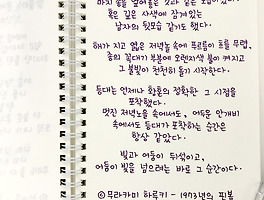 마치 물을 엎어놓은 것과 같은 모습이었다.
혹은 깊은 사색에 잠겨있는
남자의 뒷모습 같기도 했다.
해가 지고 엷은 저녁놀 속에 푸르름이 흐를 무렵,
종의 꼭대기 부분에 오렌지색 불이 켜지고
그 불빛이 천천히 돌기 시작한다.
등대는 언제나 황혼의 정확한 그 시점을
포착했다.
멋진 저녁노을 속에서도, 어두운 안개비
속에서도 등대가 포착하는 순간은
항상 같았다.
빛과 어둠이 뒤섞이고,
어둠이 빛을 넘으려는 바로 그 순간이다.
© 무라카미 하루키 - 1973년의 핀볼